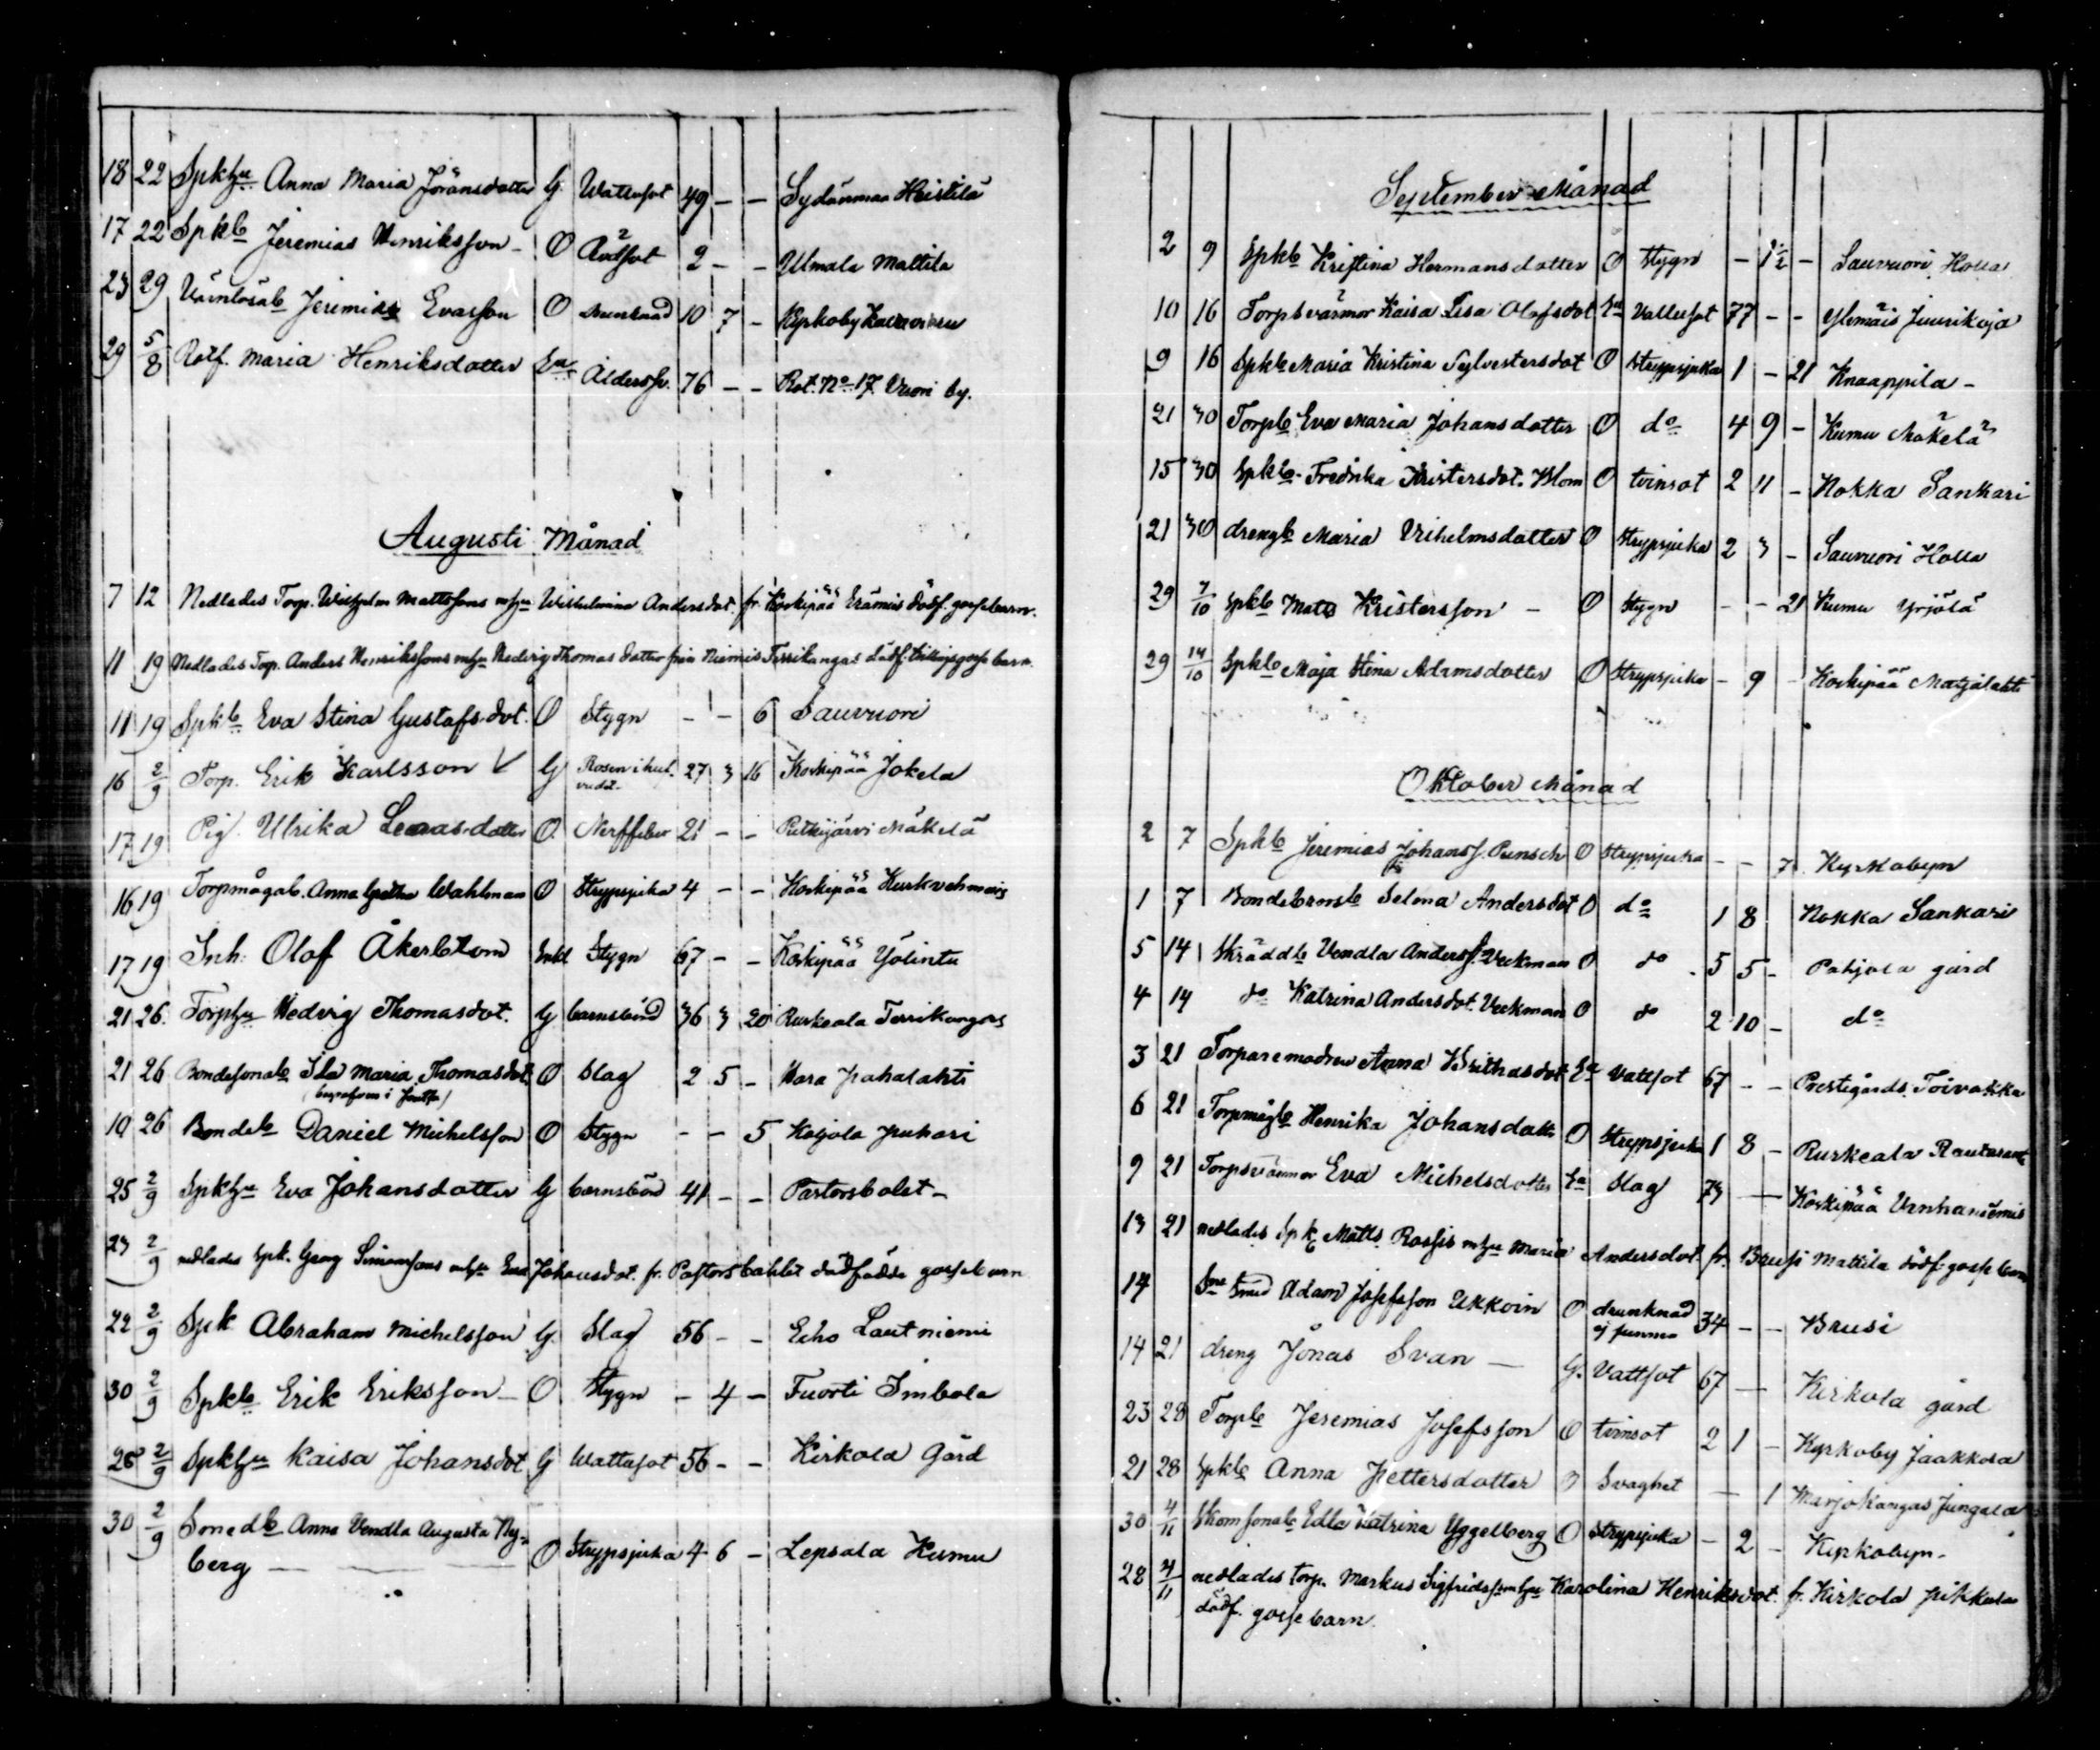 18 22 Spkhu Anna Maria Jöransdotter G. Wattusot 49 - - Sydänmaa Heistilä
17 22 Spkb Jeremias Henriksson - O Rödsot 2 - - Ulmala Mattila
23 29 Jeremias Evasson O drunknad 10 7 - Kyrkoby
29 5/8 Rotf. Maria Henriksdotter Ea Åldersb. 76 - - Rot. No 17. Vuori by.
Augusti Månad
7 12 Nedlades Torp. Wilhelm Mattssons mhu Wilhelmina Andersdot. fr. Koskipää Erämeis dödf. gossebarn.
11 19 Nedlades Torp. Anders Henrikssons mhu Hedvig Thomas dotter från Niemis Terrikangas dödf. tvillingsgossebarn.
11 19 Spkb Eva Stina Gustafsdot. O Stygn - - 6 Sauvuori
16 2/9 Torp. Erik Karlsson V G Rosen i huf-
vudet. 27 3 16 Koskipää Jokela
17 19 Pig. Ulrika dotter O. Nerffeber 21 - - Putkijärvi Mäkelä
16 19 Torpmågab. Anna Wahlman O Strypsjuka 4 - - Koskipää
17 19 Inh. Olof Åkerblom Enkl Stygn 67 - - Koskipää Ylilintu
21 26 Torphu Hedvig Thomasdot. G barnsbörd 36 3 20 Ruskeala Terrikangas
21 26 Bondesonab Ida Maria Thomasdot O Slag 2 5 - Hara Jahalahti
19 26 Bondeb Daniel Michelsson O Stygn - - 5 Kaijola Juhari
25 2/9 Spkhu Eva Johansdotter G barnsbörd 41 - - Pastorsbolet -
23 2/9 nedlades Spk. Georg Simonssons mhu Eva Johansdot. fr. Pastorsbohlet dödfödda gossebarn
22 2/9 Spk Abraham Michelsson G. Slag 56 - - Echo Lautniemi
30 2/9 Spkb Erik Eriksson - O Stygn - 4 - Tuorti Imbola
26 2/9 Spkhu Kaisa Johansdot G Wattusot 56 - - Kirkola Gård
30 2/9 Smedb. Anna Vendla Augusta Ny-
berg - O Strypsjuka 4 6 - Lepsala Kumu
September Månad
2 9 Spkb Kristina Hermansdotter O Stygn - 1½ - Sauvuori Holla
10 16 Torpsvärmor Kaisa Lisa Olofsdot Ea Vattusot 77 - - Ylimäis Juurikoja
9 16 Spkb Maria Kristina Sylvestersdot O Strypsjuka 1 - 21 Knaappila -
21 30 Torpb Eva Maria Johansdotter O do 4 9 - Kumu Mäkelä
15 30 Spkb. Fredrika Kristersdot. Blom O tvinsot 2 11 - Nokka Sankari
21 30 drengb Maria Vilhelmsdotter O Strypsjuka 2 3 - Sauvuori Holla
29 7/10 Spkb Matts Kristersson - O Stygn - - 21 Kumu Yrjölä
29 14/10 Spkb Maja Stina Adamsdotter O Strypsjuka - 9 - Koskipää Matjalahti
Oktober Månad
2 7 Spkb Jeremias Johanss. Punsch O Strypsjuka - - 7 Kyrkobyn
1 7 Selma Andersdot O do 1 8 Nokka Sankari
5 14 Skräddb Vendla Anderss. Veckman O do 5 5 - Pohjola gård
4 14 do Katrina Andersdot. Veckman O do 2 10 - do
3 21 Torparemodren Anna Brithasdot Ea Vattsot 67 - - Prestgårds Toivakka
6 21 Torpmågb Henrika Johansdottr O Strypsjuka 1 8 - Ruskeala
9 21 Torpsvärmor Eva Michelsdotter Ea Slag 73 - Koskipää Vanhaniemis
13 21 nedlades Spk. Matts Rossis mhu Maria Andersdot. fr. Brusi Mattila dödf. gossebarn
14 Smed Adam Josefsson Ukkoin O drunknad
ej funnen 34 - - Brusi
14 21 dreng Jonas Svan - G. Vattsot 67 - Kirkola gård
23 28 Torpb Jeremias Josefsson O tvinsot 2 1 - Kyrkoby Jaakkola
21 28 Spkb Anna Pettersdotter O Svaghet - 1 Marjokangas Jungala
30 4/11 Skomsonab Edla Katrina Yggelberg O Strypsjuka - 2 - Kyrkobyn.
28 4/11 nedlades torp. Markus Sigfridssons hu Karolina Henriksdot. fr. Kirkola
dödf. gossebarn.